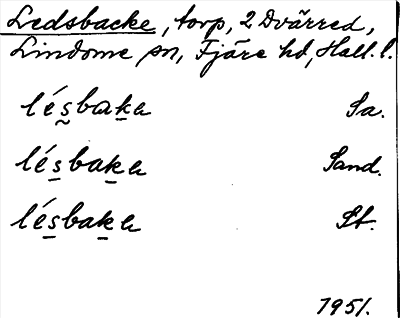 Ledsbacke, torp, 2 Dvärred,
Lindome sn, Fjäre hd, Hall. l.
lés̰bak̲a Sa.
lés̲bak̲a Sand.
lés̲bak̲a St.
1951.